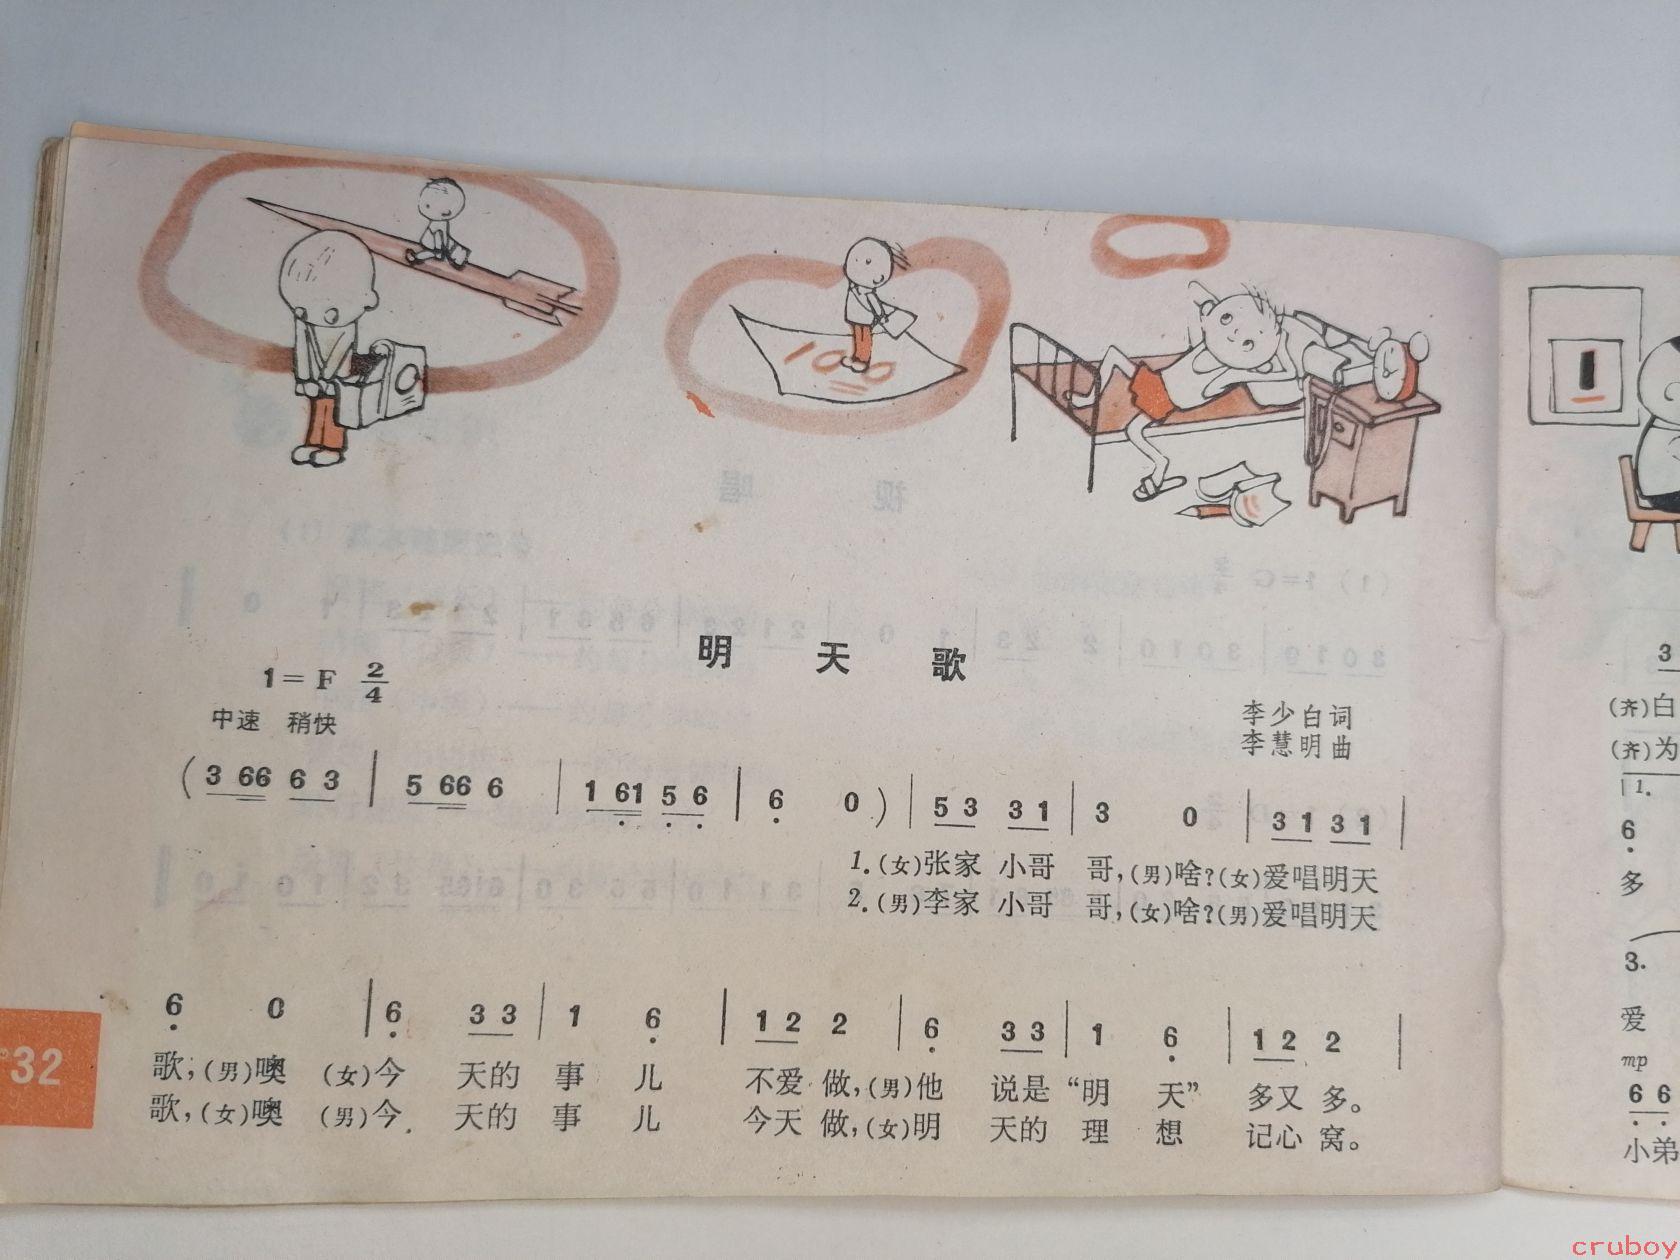 100
明 天 歌
1=F 2/4
中速 稍快
李少白词
李慧明曲
(3 66 6 3 | 5 66 6 | 1 6̣1 5̣ 6̣ | 6̣ 0) | 5 3 3 1 | 3 0 | 3 1 3 1 |
1.(女)张家 小哥 哥,(男)啥?(女)爱唱明天
2.(男)李家 小哥 哥,(女)啥?(男)爱唱明天
6̣ 0 | 6̣ 3 3 | 1 6̣ | 1 2 2 | 6̣ 3 3 | 1 6̣ | 1 2 2 |
歌,(男)噢 (女)今 天的 事 儿 不爱 做,(男)他 说是 “明 天” 多又 多。
歌,(女)噢 (男)今 天的 事 儿 今天 做,(女)明 天的 理 想 记心 窝。
32
3
(齐)白
(齐)为
1.
6̣
多
3.
爱
mp
6̣ 6̣
小弟
cruboy